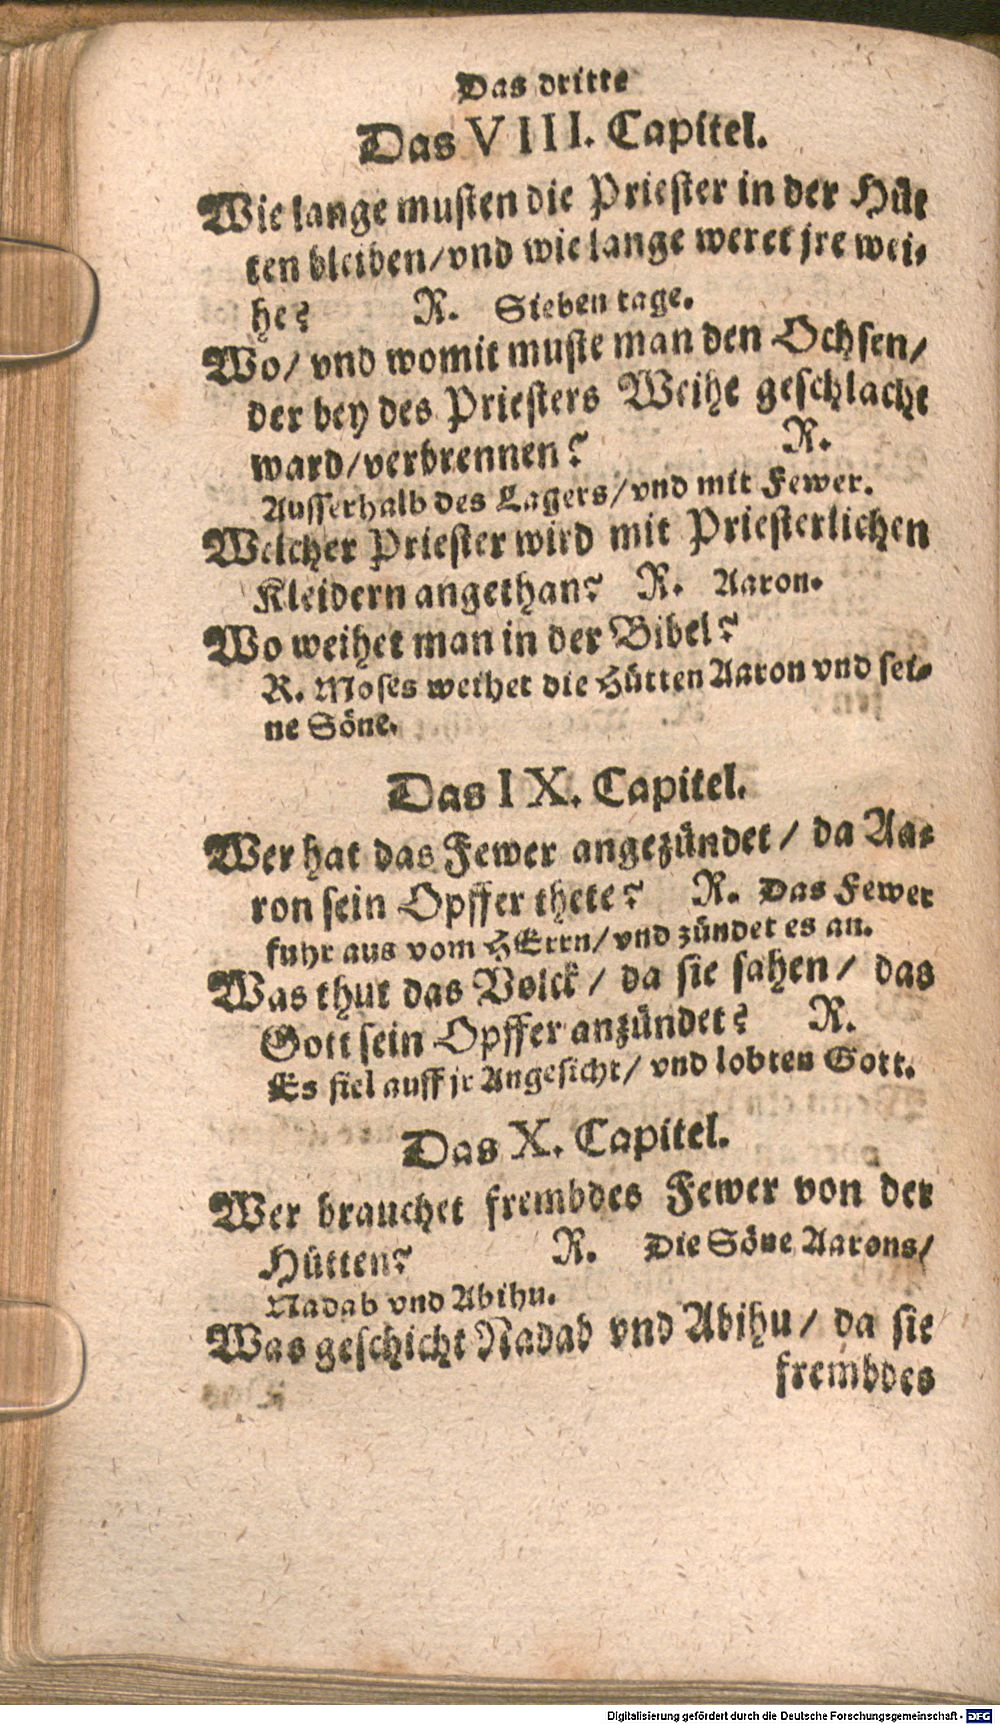 Das dritte
Das VIII. Capitel.
Wie lange musten die Priester in der Hüt
ten bleiben/vnd wie lange weret jre wei-
he? R. Sieben tage.
Wo/ vnd womit muste man den Ochsen/
der bey des Priesters Weihe geschlacht
ward/verbrennen? R.
Ausserhalb des Lagers/vnd mit Fewer.
Welcher Priester wird mit Priesterlichen
Kleidern angethan? R. Aaron.
Wo weihet man in der Bibel?
R. Moses weihet die Hütten Aaron vnd sei-
ne Söne.
Das IX. Capitel.
Wer hat das Fewer angezündet/ da Aa-
ron sein Opffer thete? R. Das Fewer
fuhr aus vom HErrn/vnd zündet es an.
Was thut das Volck/ da sie sahen/ das
Gott sein Opffer anzündet? R.
Es fiel auff jr Angesicht/ vnd lobten Gott.
Das X. Capitel.
Wer brauchet frembdes Fewer von der
Hütten? R. Die Söne Aarons/
Nadab vnd Abihu.
Was geschicht Nadab vnd Abihu/ da sie
frembdes
Digitalisierung gefördert durch die Deutsche Forschungsgemeinschaft - DFG